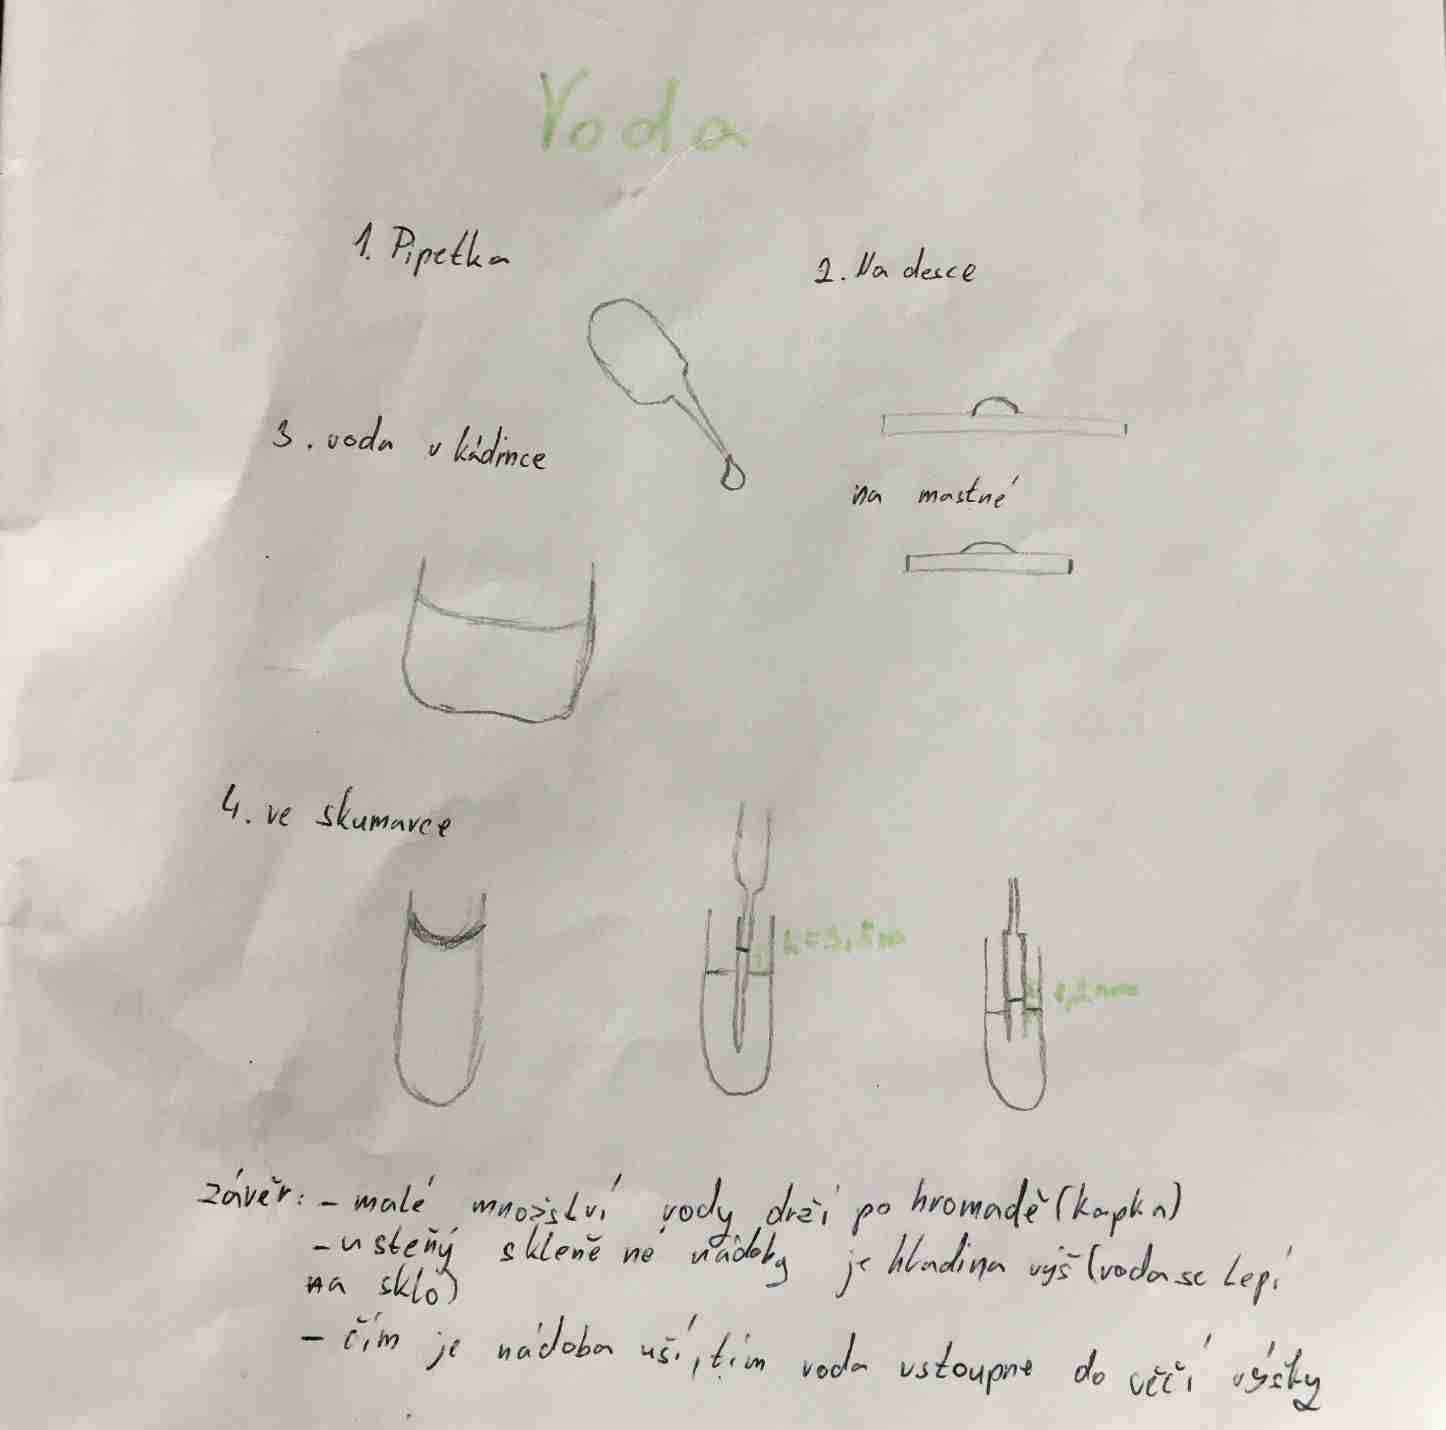 Voda
1. Pipetka
2. Na desce
3. voda v kádince
na mastné
4. ve skumavce
h=3,5m
závěr: - malé množství vody drží po hromadě (kapka)
- u steňy skleněné nádoby je hladina výš (voda se lepí
na sklo)
- čím je nádoba uší, tím voda vstoupne do věčí výšky